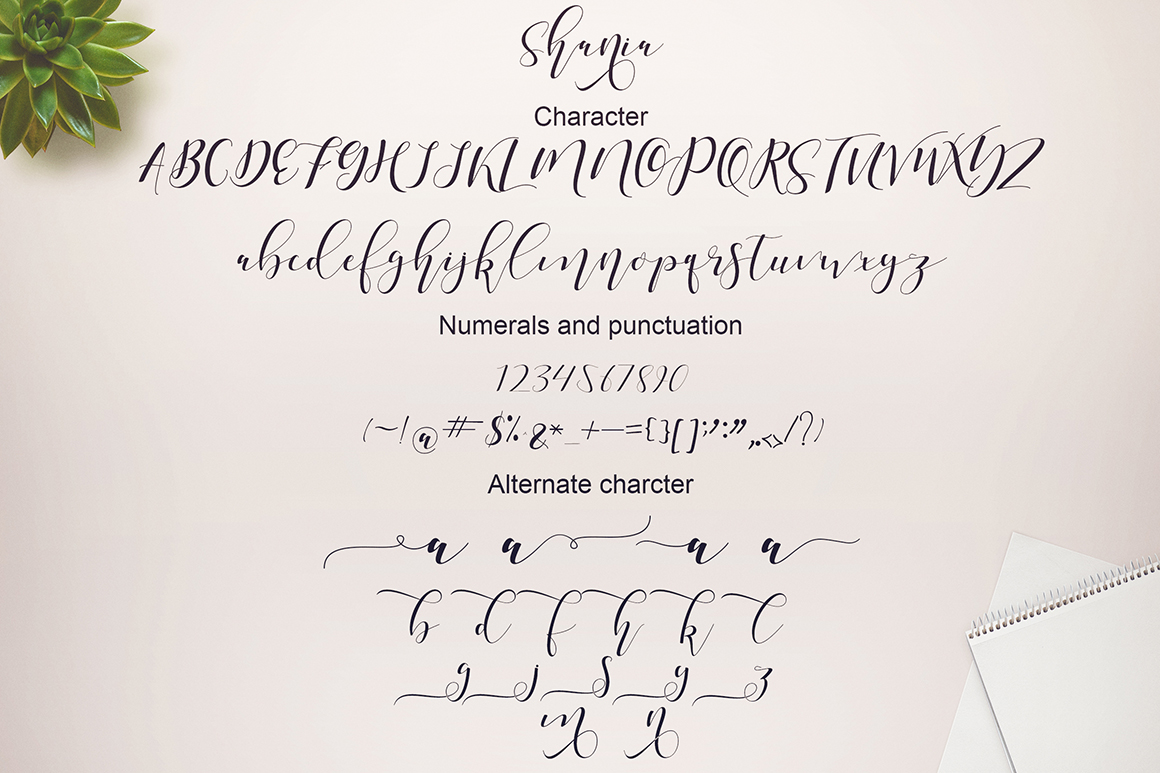 Shania
Character
ABCDEFGHIJKLMNOPQRSTUVWXYZ
abcdefghijklmnopqrstuvwxyz
Numerals and punctuation
1234567890
(~!@#$%^&*_+—={}[]:;’:”,.<>/?)
Alternate charcter
a a a a
b d f h k l
g j s y z
m n